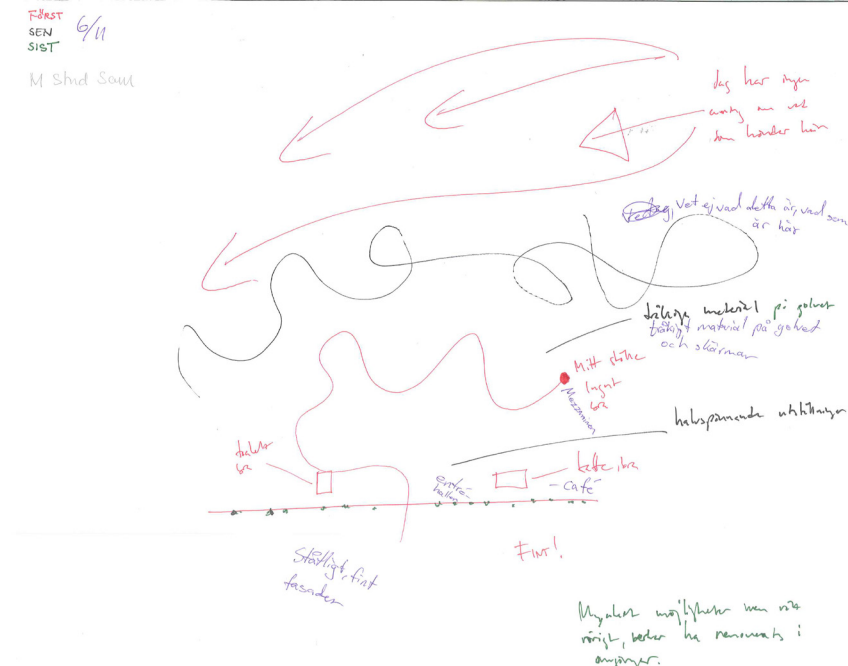 FÖRST
SEN
SIST
6/11
M Stud Sam
Jag har ingen
aning om vad
som händer här
vet ej vad detta är, vad som
är här
tråkiga material på golvet
tråkigt material på golvet
och skärmar
Mitt ställe
lugnt
bra
Mezzaninen
halvspännande utställningar
toalett
bra
entré-
hallen
kaffe, bra
- café
Ståtligt, fint
fasaden
FINT!
Mycket möjligheter men rätt
rörigt, verkar ha renoverats i
omgångar.